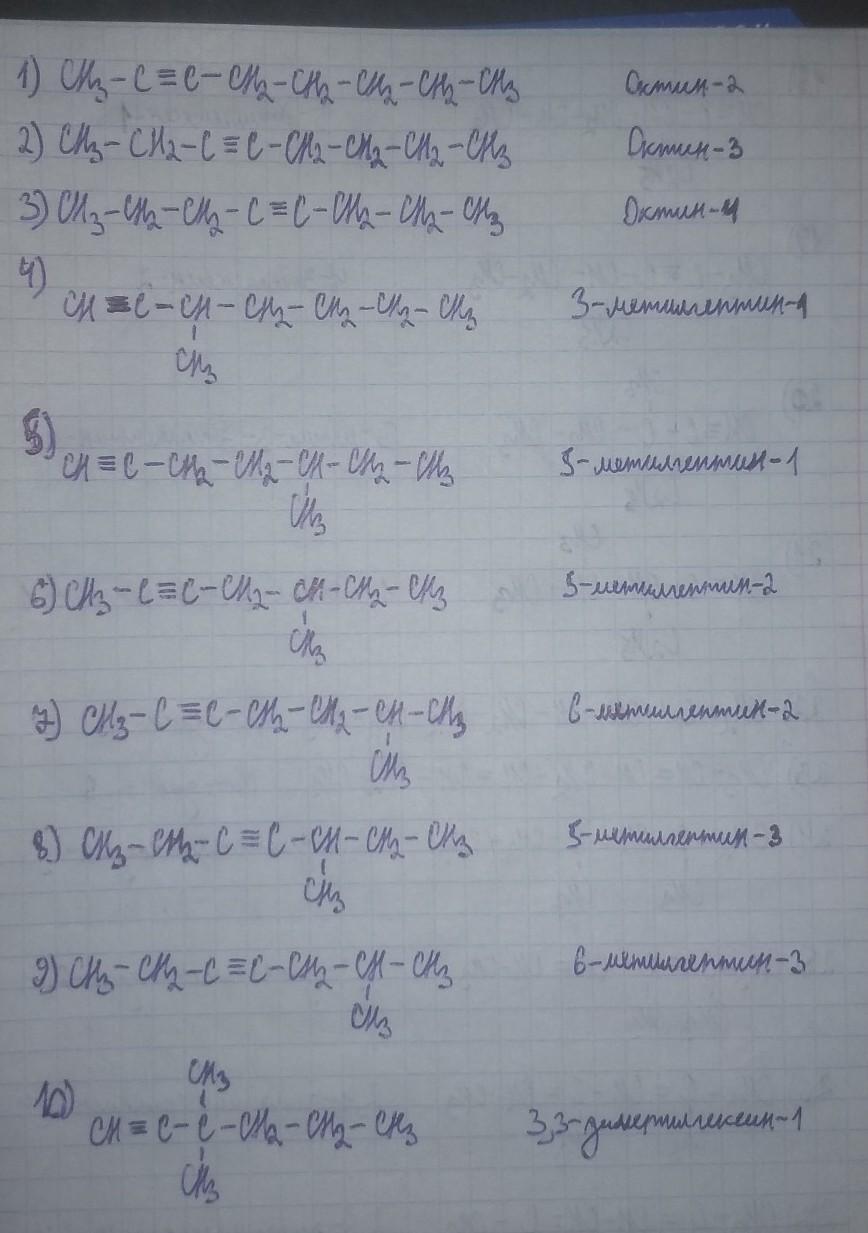 1) CH₃-C≡C-CH₂-CH₂-CH₂-CH₂-CH₃ Октин-2
2) CH₃-CH₂-C≡C-CH₂-CH₂-CH₂-CH₃ Октин-3
3) CH₃-CH₂-CH₂-C≡C-CH₂-CH₂-CH₃ Октин-4
4)
CH≡C-CH-CH₂-CH₂-CH₂-CH₃ 3-метилгептин-1
CH₃
5)
CH≡C-CH₂-CH₂-CH-CH₂-CH₃ 5-метилгептин-1
CH₃
6) CH₃-C≡C-CH₂-CH-CH₂-CH₃ 5-метилгептин-2
CH₃
7) CH₃-C≡C-CH₂-CH₂-CH-CH₃ 6-метилгептин-2
CH₃
8) CH₃-CH₂-C≡C-CH-CH₂-CH₃ 5-метилгептин-3
CH₃
9) CH₃-CH₂-C≡C-CH₂-CH-CH₃ 6-метилгептин-3
CH₃
CH₃
10) CH≡C-C-CH₂-CH₂-CH₃ 3,3-диметилгексин-1
CH₃